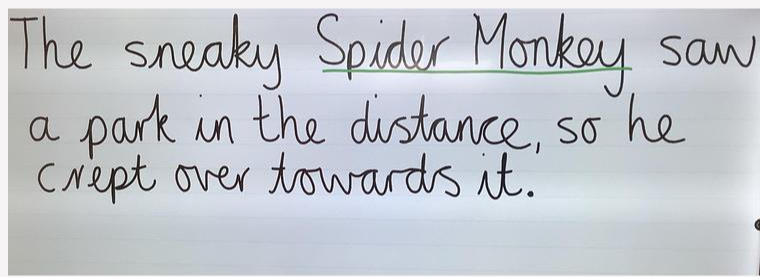 The sneaky Spider Monkey saw
a park in the distance, so he
crept over towards it.